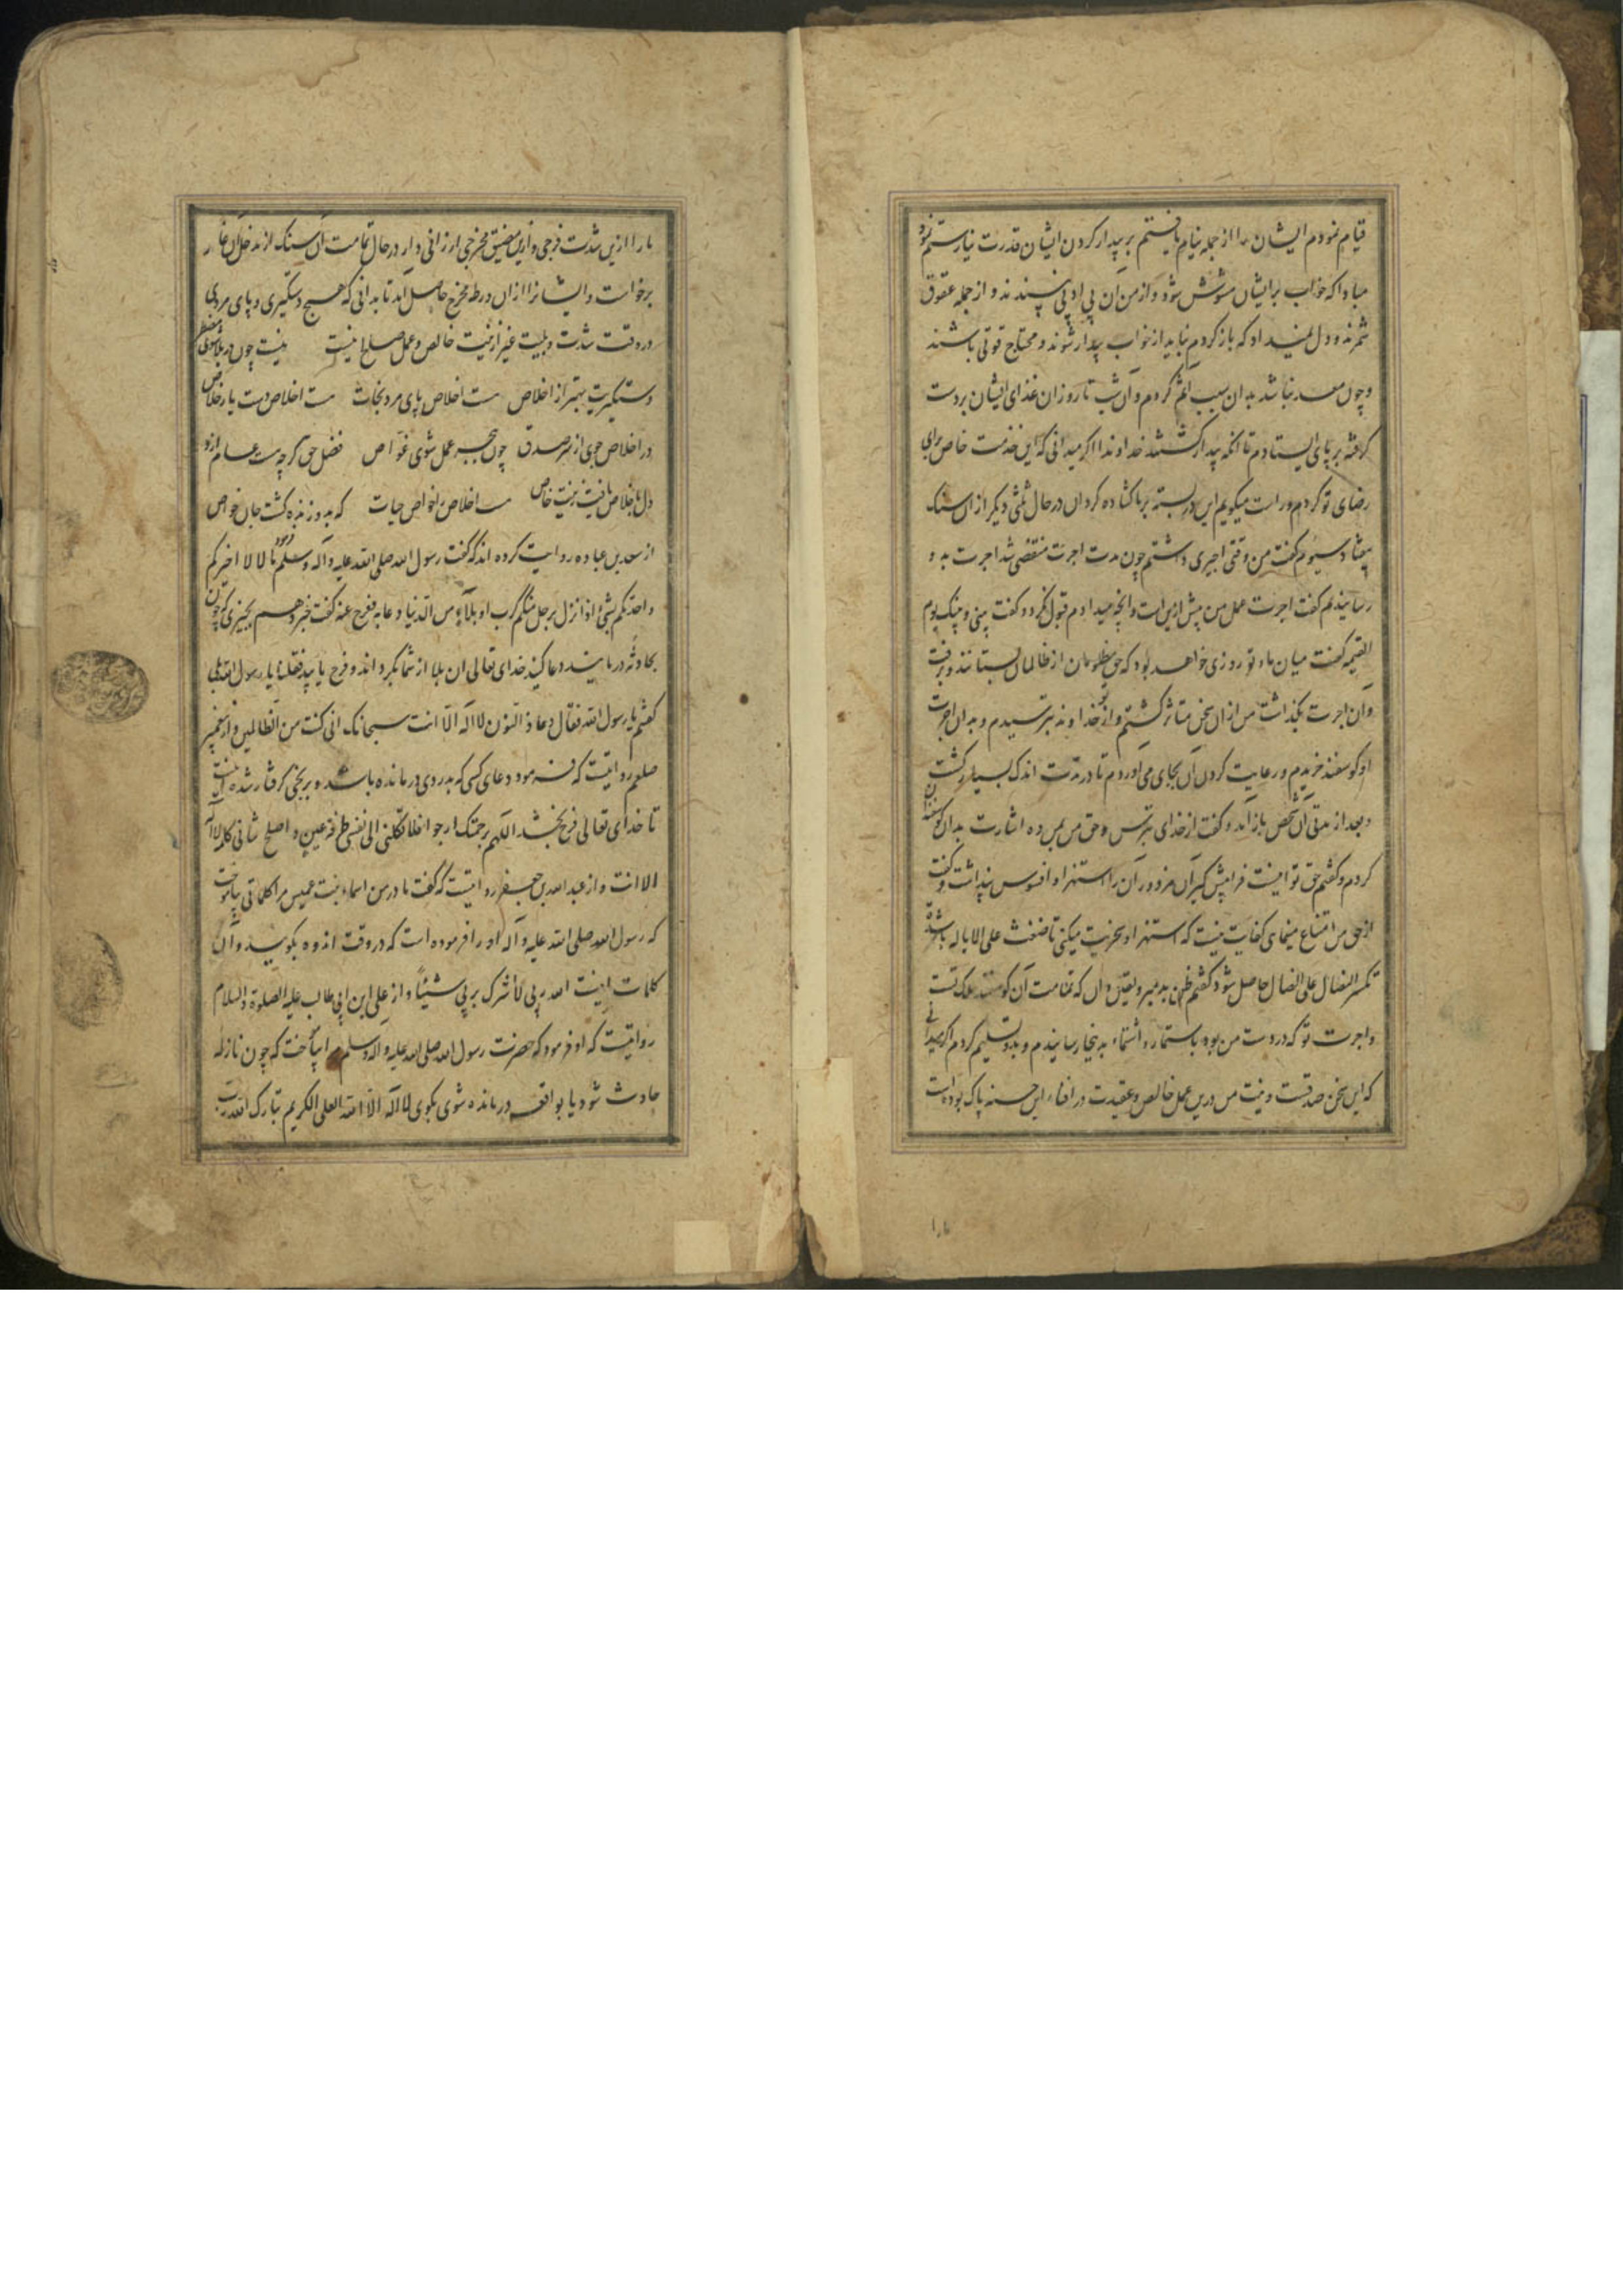 قیام نمودم ایشان را از جمله نیام یافتم بر بیدار کردن ایشان قدرت نیارستم نمود
مبادا که خواب بر ایشان مشوش شود و از من آن بی ادبی نپسندند و از جمله عقوق
شمرند و دل نمیداد که باز کردم نباید از خواب بیدار شوند و محتاج قوتی باشند
و چون معد نباشد بدان سبب آثم کردم و آن شب تا روز آن غذای ایشان بر دست
کرفته بر پای ایستادم تا انکه بیدار کشتند خداوندا اکر میدانی که این خدمت خاص برای
رضای تو کردم و راست میکویم این در بسته بر ما کشاده کردان در حال ثلثی دیکر از ان سنک
بیفتاد سیوم کفت من وقتی اجیری داشتم چون مدت اجرت منقضی شد اجرت بدو
رسانیدم کفت اجرت عمل من بیش ازین است و انچه میدادم قبول نکرد و کفت بینی و بینک یوم
القیمه کفت میان ما و تو روزی خواهد بود که حق مظلومان از ظالمان بستانند و برفت
و آن اجرت بکذاشت من از ان سخن متاثر کشتم و از خداوند بترسیدم و بدان اجرت
او کوسفند خریدم و رعایت کردن آن بجای می آوردم تا در مدت اندک بسیار کشت
و بعد از مدتی آن شخص باز آمد و کفت از خدای بترس و حق من بمن ده اشارت بدان کوسفندان
کردم و کفتم حق تو اینست فرا پیش کیر آن مزدور آن را استهزا و افسوس پنداشت و کفت
از حق من امتناع مینمای کفایت نیست که استهزا و سخریت میکنی تا ضغث علی الاباله باشد و
تکسر النصال علی النصال حاصل شود کفتم ظن بد مبر و یقین دان که تمامت آن کوسفند ملک تست
و اجرت تو که در دست من بود باستثمار و استنماء بدینجا رسانیدم و بدو تسلیم کردم اکر میدانی
که این سخن صدقست و نیت من درین عمل خالص و عقیدت در افشاء این حسنه پاک بوده است
ما را ازین شدت فرجی و ازین مضیق مخرجی ارزانی دار در حال تمامت آن سنک از مدخل آن غار
برخاست و ایشانرا از ان ورطه مخرج حاصل آمد تا بدانی که هیچ دستکیری و پای مردی
در وقت شدت و بلیت غیر از نیت خالص و عمل صالح نیست بیت چون در بلا شوی مضطر
دستکیریت بهتر از اخلاص هست اخلاص پای مرد نجات هست اخلاص دست یار خلاص
در اخلاص جوی از سر صدق چون ببحر عمل شوی غواص فضل حق کرچه هست عام ازو
دل باخلاص یافت زینت خاص هست اخلاص از خواص حیات که بدو زنده کشت جان خواص
از سعد بن عباده روایت کرده اند که کفت رسول الله صلی الله علیه و آله و سلم فرمود تا لا لا اخبرکم
و احدثکم بشئ اذا نزل برجل منکم کرب او بلاء من الدنیا دعا به ففرج عنه کفت خبر دهم بچیزی که چون
بحادثه درمانید دعا کنید خدای تعالی ان بلا از شما بکرداند و فرج یابید فقلنا یا رسول الله بلی
کفتم یا رسول الله فقال دعا ذالنون لا اله الا انت سبحانک انی کنت من الظالمین و از پیغمبر
صلعم روایتست که فرمود دعای کسی که بدردی درمانده باشد و برنجی کرفتار شده اینست
تا خدای تعالی فرج بخشد اللهم برحمتک ارجو افلا تکلنی الی نفسی طرفة عین و اصلح شانی کله لا اله
الا انت و از عبد الله بن جعفر روایتست که کفت مادر من اسماء بنت عمیس مرا کلماتی بیاموخت
که رسول الله صلی الله علیه و آله او را فرموده است که در وقت اندوه بکوید و آن
کلمات اینست الله ربی لا اشرک بربی شیئا و از علی ابن ابی طالب علیه الصلوة و السلام
روایتست که او فرمود که حضرت رسول الله صلی الله علیه و آله و سلم مرا بیاموخت که چون نازله
حادث شود یا بواقعه درمانده شوی بکوی لا اله الا الله العلی الکریم تبارک الله رب